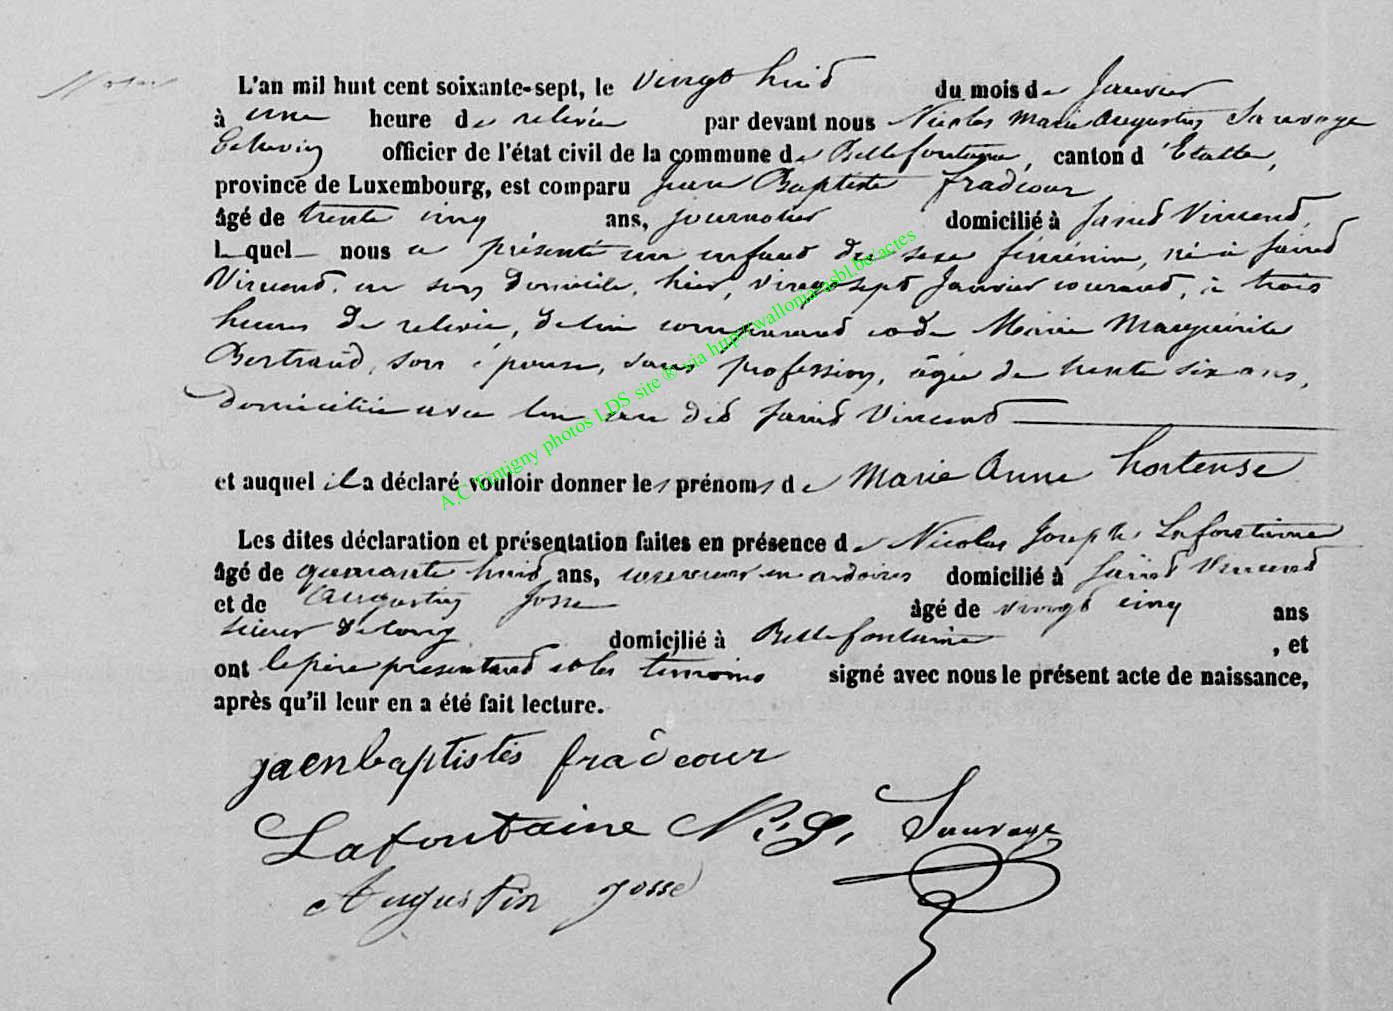 L'an mil huit cent soixante-sept, le vingt huit du mois de Janvier
à une heure de relevée par devant nous Nicolas Marie Augustin Sauvage
Echevin officier de l'état civil de la commune de Bellefontaine, canton d'Etalle,
province de Luxembourg, est comparu Jean Baptiste fradcour
âgé de trente cinq ans, journalier domicilié à Saint Vincent,
Lequel nous a présenté un enfant du sexe féminin, né à Saint
Vincent, en son domicile, hier, vingt sept Janvier courant, à trois
heures de relevée, de lui comparant et de Marie Marguerite
Bertrand, son épouse, sans profession, âgée de trente six ans,
domiciliée avec lui au dit Saint Vincent
et auquel il a déclaré vouloir donner les prénoms de Marie Anne hortense
Les dites déclaration et présentation faites en présence de Nicolas Joseph Lafontaine
âgé de quarante huit ans, couvreur en ardoises domicilié à Saint Vincent
et de Augustin Josse âgé de vingt cinq ans
scieur de long domicilié à Bellefontaine, et
ont le père présentant et les témoins signé avec nous le présent acte de naissance,
après qu'il leur en a été fait lecture.
jaenbaptistes fradcour
Lafontaine N. J. Sauvage
Augustin josse
A.C. Tintigny photos LDS site ® via http://wallonia.asbl.be/actes